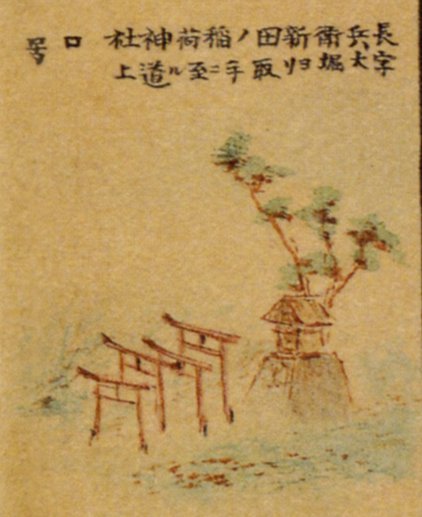 長兵衛新田ノ稲荷神社 口
字大堀ヨリ取手ニ至ル道上